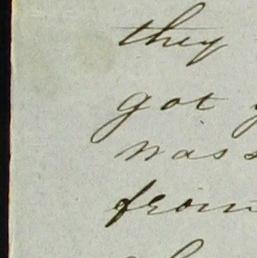 they
got
was
from